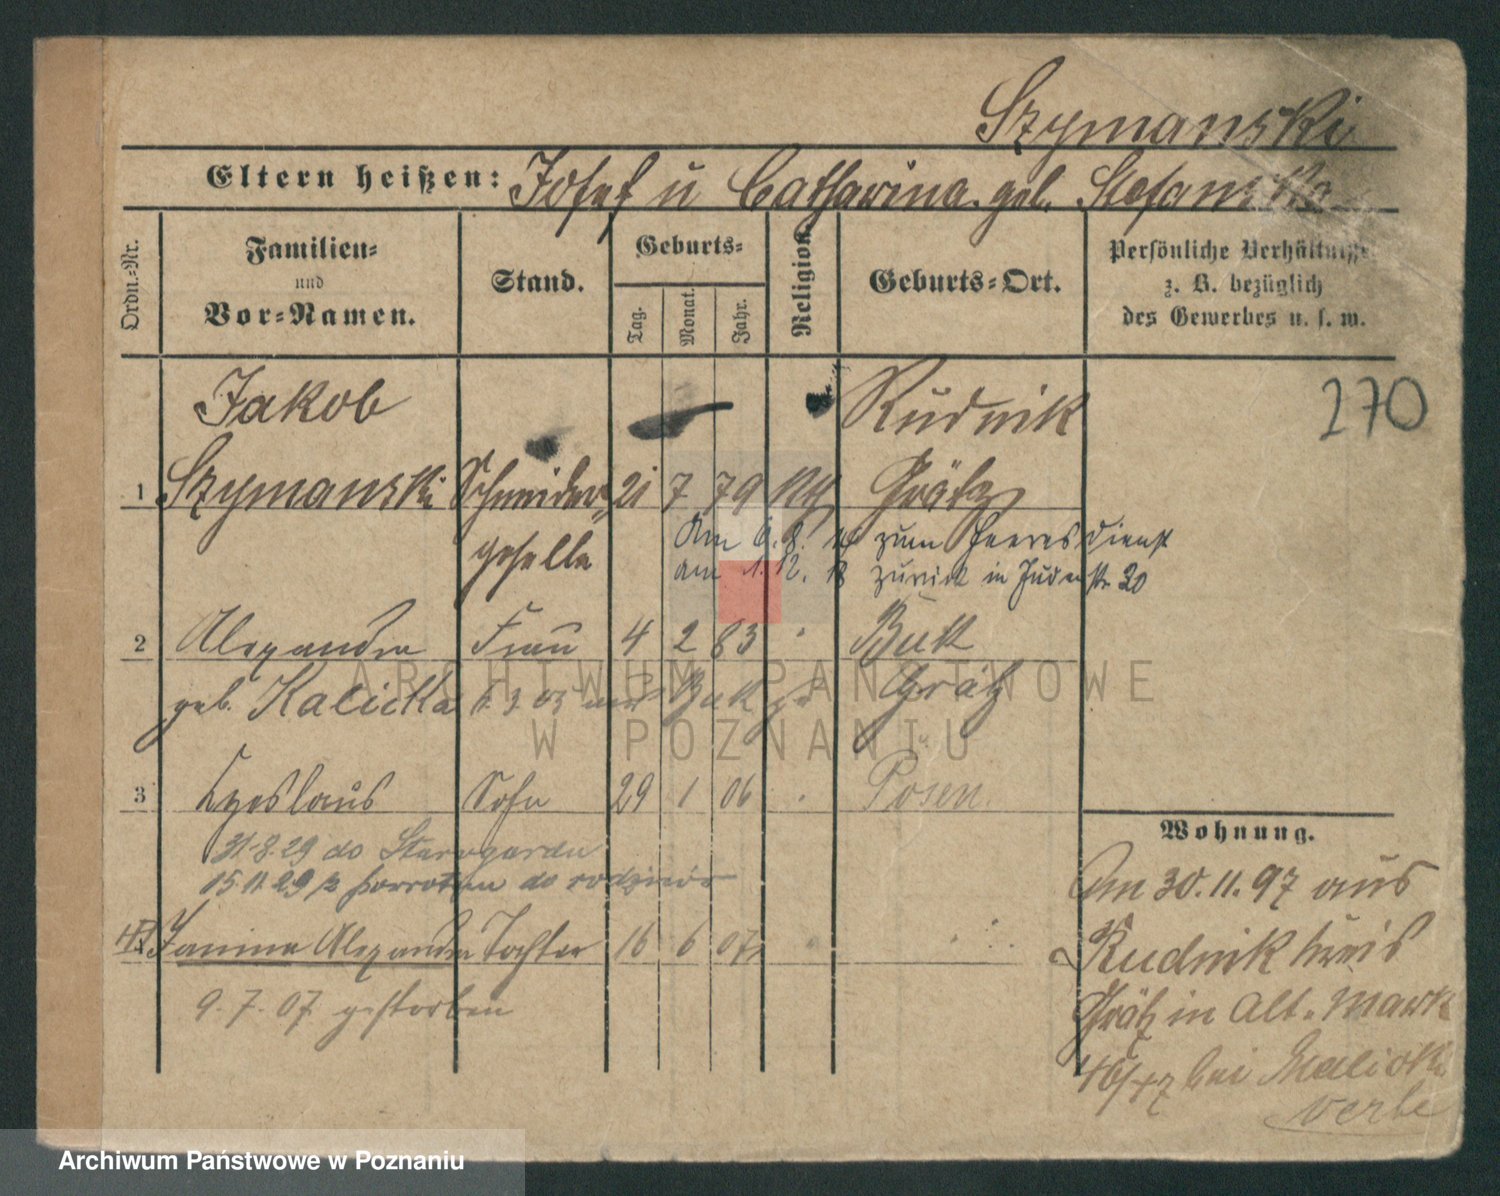 Szymanski
Eltern heißen: Josef u Catharina geb. Stefanska
Ordn.-Nr.
Familien-
und
Vor-Namen.
Stand.
Geburts-
Tag.
Monat.
Jahr.
Religion.
Geburts-Ort.
Persönliche Verhältnisse
z. B. bezüglich
des Gewerbes u. s. w.
270
Jakob Rudnik
1 Szymanski Schneider 21 7 79 kth Grätz
geselle
Am 6.8. zum Heeresdienst
am 1.12. 18 zurück in Judenstr 20
2 Alexandra Frau 4 2 83 Buk
geb. Kalicka 3 03 Buk Grätz
3 Czeslaus Sohn 29 1 06 Posen.
31.8.29 do Starogardu
15.11.29 z powrotem do
Janina Alexandra Tochter 16 6 07
9.7.07 gestorben
Wohnung.
Am 30.11.97 aus
Rudnik Kreis
Grätz in Alt. Markt
46/47 bei
ARCHIWUM PAŃSTWOWE
W POZNANIU
Archiwum Państwowe w Poznaniu